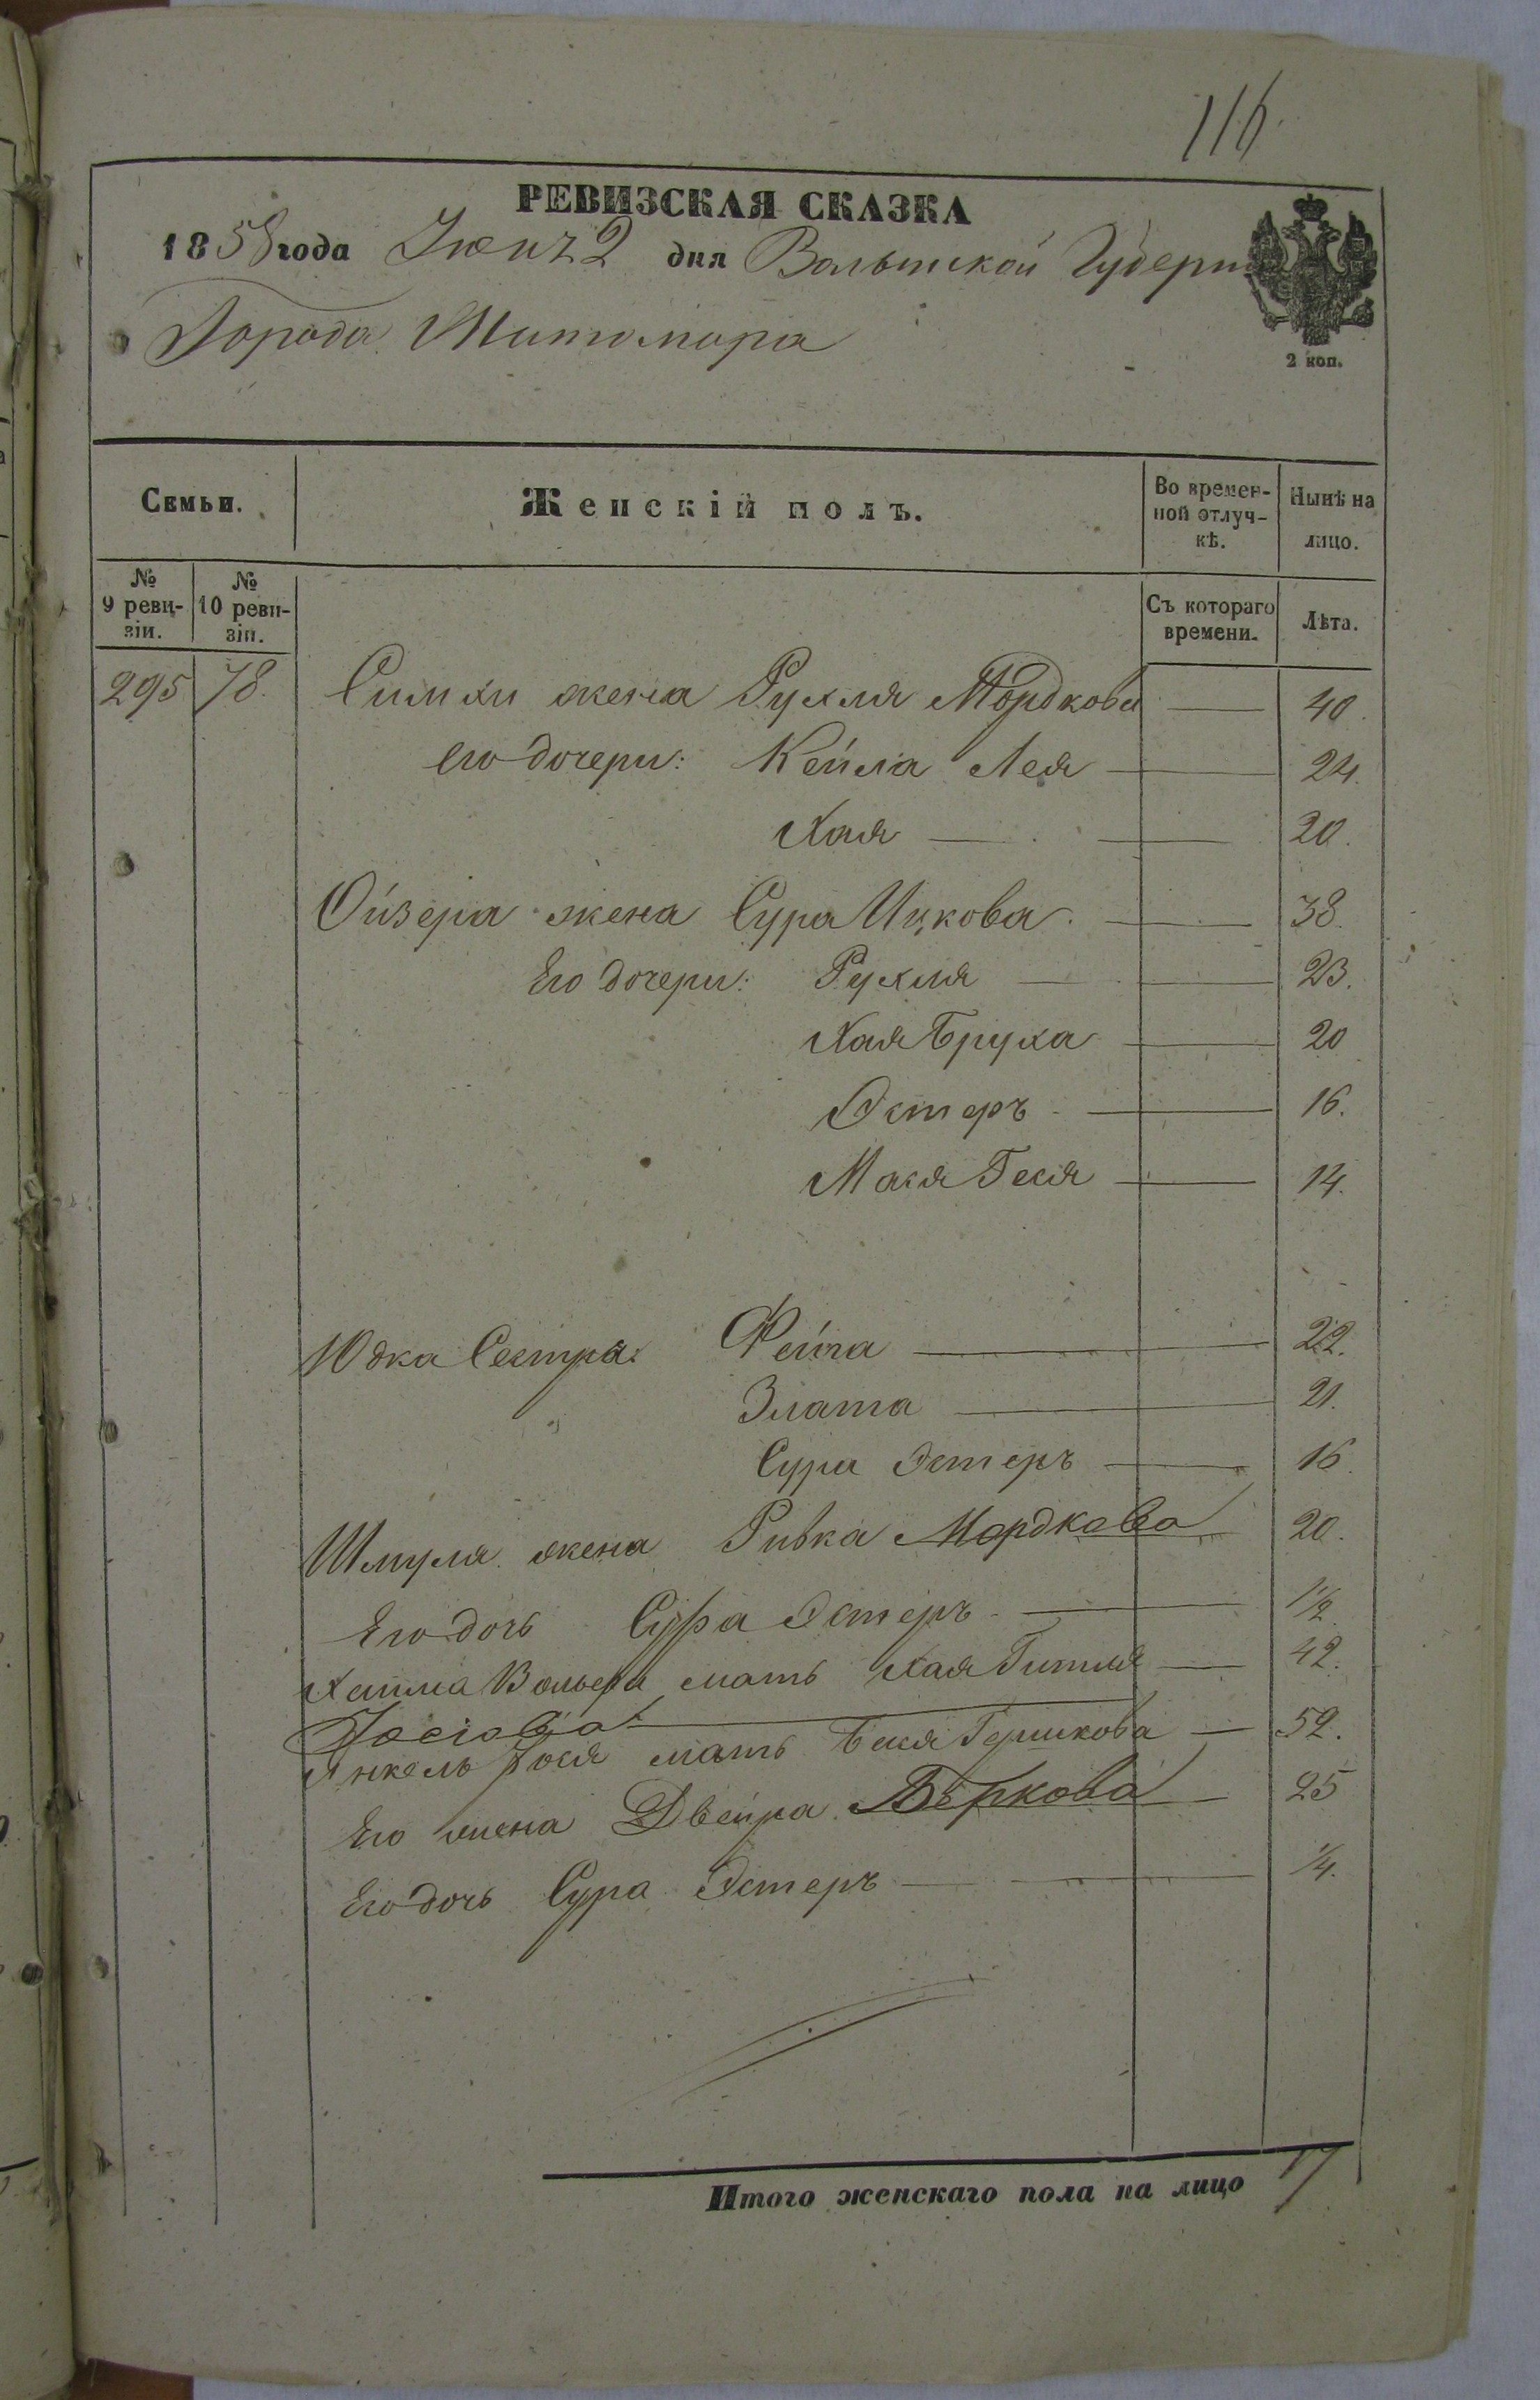 116.
РЕВИЗСКАЯ СКАЗКА
1858 года Июня 2 дня Волынской Губерн
Города Житомира
2 коп.
Семьи. Женскій полъ. Во времен-ной отлуч-кѣ. Нынѣ на лицо.
№ 9 реви-зіи. № 10 реви-зіи. Съ котораго времени. Лѣта.
295 78. Симхи жена Рухля Мордкова 40.
его дочери: Кейла Лея 24.
Хая 20.
Ойзера жена Сура Ицкова 38.
Его дочери: Рухля 23.
Хая Бруха 20
Эстеръ 16.
Мася Геся 14.
Юдка Сестра: Фейга 22.
Злата 21.
Сура Эстеръ 16.
Шмуля жена Ривка Мордкова 20.
Его дочь Сура Эстеръ 1/2.
Вольфа мать Хая Гитля 42.
Иосіова
Янкель мать Гершкова 52.
Его жена Двейра Беркова 25
Его дочь Сура Эстеръ 1/4.
Итого женскаго пола на лицо 17